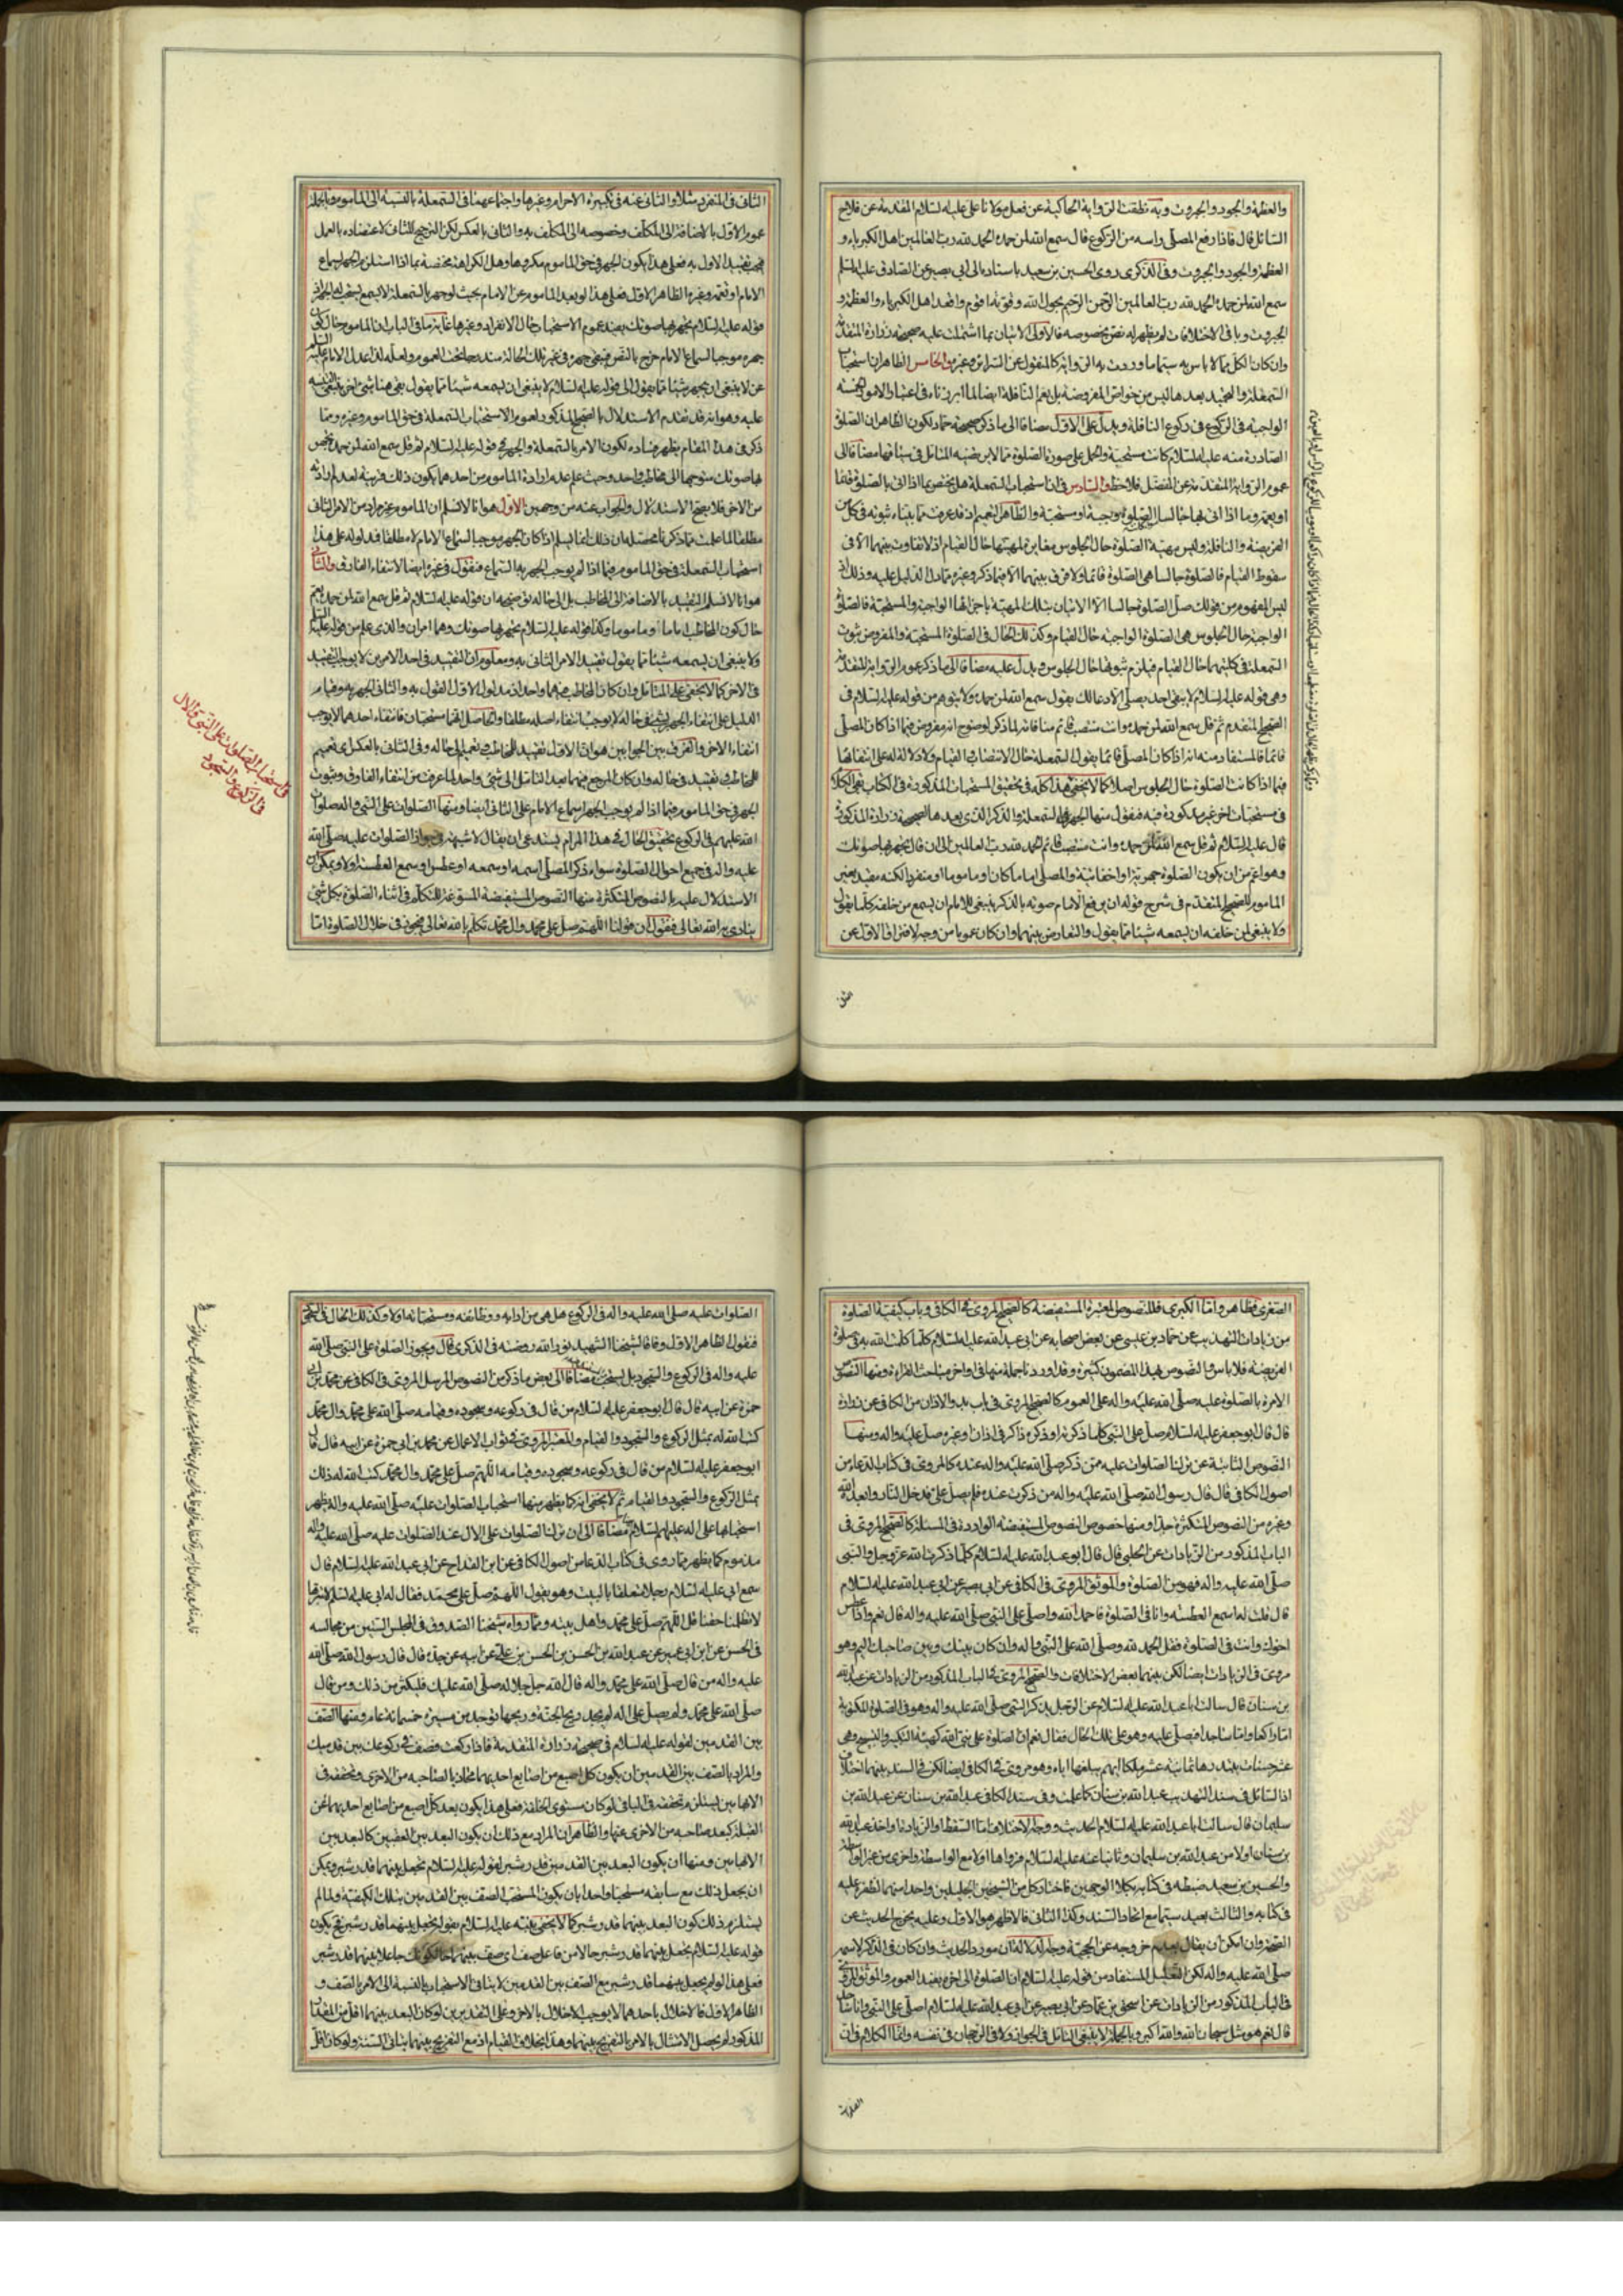 والعظمة والجود والجبروت وبه نطقت الرواية الحاكية عن فعل مولانا علي عليه السلام المقدمة عن فلاح
السائل قال فاذا رفع المصلي راسه من الركوع قال سمع الله لمن حمده الحمد لله رب العالمين اهل الكبرياء و
العظمة والجود والجبروت وفي الذكرى روى الحسين بن سعيد باسناده الى ابي بصير عن الصادق عليه السلم
سمع الله لمن حمده الحمد لله رب العالمين الرحمن الرحيم بحول الله وقوته اقوم واقعد اهل الكبرياء والعظمة و
الجبروت وباقي الاختلافات لم يظهر له نص بخصوصه فالاولى الاتيان بما اشتملت عليه صحيحة زرارة المتقدمة
وان كان الكل مما لا باس به سيما ما وردت به الرواية كالمنقول عن السرائر وغيره الخامس الظاهر ان استحباب
السمعلة والتحميد بعدها ليس من خواص المفروضة بل يعم النافلة ايضا لما ابرزناه في اعتبار الامور الخمسة
الواجبة في الركوع في ركوع النافلة ويدل على الاول مضافا الى ما ذكر صحيحة حماد لكون الظاهر ان الصلوة
الصادرة منه عليه السلام كانت مستحبة والحمل على صورة الصلوة مما لا يرتضيه المتامل في سياقها مضافا الى
عموم الرواية المتقدمة عن المفضل فلاحظ والسادس في ان استحباب السمعلة هل يختص بما اذا اتى بالصلوة قائما
او يعمه وما اذا اتى بها جالسا الصلوة واجبة او مستحبة والظاهر التعميم اذ قد عرفت مما بيناه ثبوته في كل من
الفريضة والنافلة وليس مهية الصلوة حال الجلوس مغايرة لمهيتها حال القيام اذ لا تفاوت بينهما الا في
سقوط القيام فالصلوة جالسا هي الصلوة قائما ولا فرق بينهما الا فيما ذكر وغيره مما دل الدليل عليه وذلك اذ
ليس المفهوم من قولك صل الصلوة جالسا الا الاتيان بتلك المهية باجزائها الواجبة والمستحبة فالصلوة
الواجبة حال الجلوس هي الصلوة الواجبة حال القيام وكذلك الحال في الصلوة المستحبة والمفروض ثبوت
السمعلة في كلتيهما حال القيام فيلزم ثبوتها حال الجلوس ويدل عليه مضافا الى ما ذكر عموم الرواية المتقدمة
وهي قوله عليه السلام لا يبقى احد يصلي الا دعا لك يقول سمع الله لمن حمده ولا يتوهم من قوله عليه السلام في
الصحيح المتقدم ثم قل سمع الله لمن حمده وانت منتصب قائم منافاته لما ذكر لوضوح انه مفروض فيما اذا كان المصلي
قائما فالمستفاد منه انه اذا كان المصلي قائما يقول السمعلة حال الانتصاب في القيام ولا دلالة له على انتفائها
فيما اذا كانت الصلوة حال الجلوس اصلا كما لا يخفى هذا كله في تحقيق المستحبات المذكورة في الكتاب بقي الكلام
في مستحبات اخر غير مذكورة فيه فنقول منها الجهر بالسمعلة والذكر الذي بعدها لصحيحة زرارة المذكورة
قال عليه السلام ثم قل سمع الله لمن حمده وانت منتصب قائم الحمد لله رب العالمين الى ان قال تجهر بها صوتك
وهو اعم من ان يكون الصلوة جهرية او اخفاتية والمصلي اماما كان او ماموما او منفردا لكنه مقيد بغير
الماموم للصحيح المتقدم في شرح قوله ان يرفع الامام صوته بالذكر ينبغي للامام ان يسمع من خلفه كلما يقول
ولا ينبغي لمن خلفه ان يسمعه شيئا مما يقول والتعارض بينهما وان كان عموما من وجه لافتراق الاول عن
الثاني في المنفرد مثلا والثاني عنه في تكبيرة الاحرام وغيرها واجتماعهما في السمعلة بالنسبة الى الماموم وبالجملة
عموم الاول بالاضافة الى المكلف وخصوصه الى المكلف به والثاني بالعكس لكن الترجيح للثاني لاعتضاده بالعمل
فيجب تقييد الاول به فعلى هذا يكون الجهر في حق الماموم مكروها وهل الكراهة مختصة بما اذا استلزم الجهر اسماع
الامام او تعمه وغيره الظاهر الاول فعلى هذا لو بعد الماموم عن الامام بحيث لو جهر بالسمعلة لا يسمع يستحب له الجهر لان
قوله عليه السلام تجهر بها صوتك يفيد عموم الاستحباب حال الانفراد وغيرها غاية ما في الباب ان الماموم حال كون
جهره موجبا لسماع الامام خرج بالنص فيبقى جهره في غير تلك الحالة مندرجا تحت العموم ولعله لذا عدل الامام عليه السلم
عن لا ينبغي ان يجهر شيئا مما يقول الى قوله عليه السلام لا ينبغي ان يسمعه شيئا مما يقول بقي هنا شيء اخر ينبغي التنبيه
عليه وهو انه قد تقدم الاستدلال بالصحيح المذكور لعموم الاستحباب السمعلة في حق الماموم وغيره ومما
ذكر في هذا المقام يظهر فساده لكون الامر بالسمعلة والجهر في قوله عليه السلام ثم قل سمع الله لمن حمده تجهر
بها صوتك متوجها الى مخاطب واحد وحيث علم عدم ارادة الماموم من احدهما يكون ذلك قرينة لعدم ارادته
من الاخر فلا يصح الاستدلال والجواب عنه من وجهين الاول هو انا لا نسلم ان الماموم غير مراد من الامر الثاني
مطلقا لما علمت مما ذكرنا محصله ان ذلك انما يسلم اذا كان الجهر موجبا لسماع الامام لا مطلقا فمدلوله على هذا
استحباب السمعلة في حق الماموم فيما اذا لم يوجب الجهر به السماع فنقول في غيره ايضا لانتفاء الفارق والثاني
هو انا لا نسلم التقييد بالاضافة الى المخاطب بل الى حاله توضيحه ان قوله عليه السلام ثم قل سمع الله لمن حمده يعم
حال كون المخاطب اماما وماموما وكذا قوله عليه السلام تجهر بها صوتك وهما امران والذي علم من قوله عليه السلم
ولا ينبغي ان يسمعه شيئا مما يقول تقييد الامر الثاني به ومعلوم ان التقييد في احد الامرين لا يوجب التقييد
في الاخر كما لا يخفى على المتامل وان كان المخاطب فيهما واحدا اذ مدلول الاول القول به والثاني الجهر به وقيام
الدليل على انتفاء الجهر بشيء في حالة لا يوجب انتفاء اصله مطلقا والحاصل انهما مستحبان فانتفاء احدهما لا يوجب
انتفاء الاخر والفرق بين الجوابين هو ان الاول تقييد للمخاطب في تعميم الى حاله وفي الثاني بالعكس اي تعميم
للمخاطب في تقييد في حاله وان كان المرجع فيهما بعد التامل الى شيء واحد لما عرفت من انتفاء الفارق وثبوت
الجهر في حق الماموم فيما اذا لم يوجب الجهر اسماع الامام على الثاني ايضا ومنها الصلوات على النبي واله صلوات
الله عليهم في الركوع تحقيق الحال في هذا المرام يستدعي ان يقال لا شبهة في جواز الصلوات عليه صلى الله
عليه واله في جميع احوال الصلوة سواء ذكر المصلي اسمه او سمعه او عطس او سمع العطسة او لا ويمكن
الاستدلال عليه بالنصوص المتكثرة منها النصوص المستفيضة المسوغة للتكلم في اثناء الصلوة بكل شيء
يناجي به الله تعالى فنقول ان قولنا اللهم صل على محمد وال محمد تكلم يا الله تعالى يجوز في خلال الصلوة اما
في استحباب الصلوات على النبي والال
في الركوع والسجود
الصغرى فظاهر واما الكبرى فللنصوص المعتبرة المستفيضة كالصحيح المروي في الكافي وباب كيفية الصلوة
من زيادات التهذيب عن حماد بن عيسى عن بعض اصحابه عن ابي عبد الله عليه السلام كلما كلمت الله به في صلوة
الفريضة فلا باس والنصوص بهذا المضمون كثيرة وقد اوردنا جملة منها في اواخر مباحث القراءة ومنها النصوص
الامرة بالصلوة عليه صلى الله عليه واله على العموم كالصحيح المروي في باب بدو الاذان من الكافي عن زرارة
قال قال ابو جعفر عليه السلام صل على النبي كلما ذكرته او ذكره ذاكر في اذان او غيره صلى عليه واله ومنها
النصوص الناهية عن ترك الصلوات عليه ممن ذكر صلى الله عليه واله عنده كالمروي في كتاب الدعاء من
اصول الكافي قال قال رسول الله صلى الله عليه واله من ذكرت عنده فلم يصل علي فدخل النار فابعده الله
وغيره من النصوص المتكثرة جدا ومنها خصوص النصوص المستفيضة الواردة في المسئلة كالصحيح المروي في
الباب المذكور من الزيادات عن الحلبي قال قال ابو عبد الله عليه السلام كلما ذكرت الله عز وجل والنبي
صلى الله عليه واله فهو من الصلوة والموثق المروي في الكافي عن ابي بصير عن ابي عبد الله عليه السلام
قال قلت له اسمع العطسة وانا في الصلوة فاحمد الله واصلي على النبي صلى الله عليه واله قال نعم واذا عطس
اخوك وانت في الصلوة فقل الحمد لله وصلى الله على النبي واله وان كان بينك وبين صاحبك اليم وهو
مروي في الزيادات ايضا لكن بينهما بعض الاختلافات والصحيح المروي في الباب المذكور من الزيادات عن عبد الله
بن سنان قال سالت ابا عبد الله عليه السلام عن الرجل يذكر النبي صلى الله عليه واله وهو في الصلوة المكتوبة
اما راكعا واما ساجدا فيصلي عليه وهو على تلك الحال فقال نعم ان الصلوة على نبي الله كهيئة التكبير والتسبيح وهي
عشر حسنات يبتدرها ثمانية عشر ملكا ايهم يبلغها اياه وهو مروي في الكافي ايضا لكن في السند بينهما اختلاف
اذ السائل في سند التهذيب عبد الله بن سنان كما علمت وفي سند الكافي عبد الله بن سنان عن عبد الله بن
سليمان قال سالت ابا عبد الله عليه السلام الحديث ووجه الاختلاف اما السقط او الزيادة او اخذ عبد الله
بن سنان اولا من عبد الله بن سليمان وثانيا عنه عليه السلام فرواها اولا مع الواسطة واخرى من غير الواسطة
والحسين بن سعيد ضبطه في كتابه بكلا الوجهين فاختار كل من الشيخين الجليلين واحدا منهما لظفره عليه
في كتابه والثالث بعيد سيما مع اتحاد السند وكذا الثاني فالاظهر هو الاول وعليه يخرج الحديث عن
الصحة وان امكن ان يقال بعدم خروجه عن الحجية وجه الدلالة ان مورد الحديث وان كان في الذكر لاسمه
صلى الله عليه واله لكن التعليل المستفاد من قوله عليه السلام ان الصلوة الى اخره يفيد العموم والموثق المروي
في الباب المذكور من الزيادات عن اسحق بن عمار عن ابي بصير عن ابي عبد الله عليه السلام اصلي على النبي وانا ساجد
قال نعم هو مثل سبحان الله والله اكبر وبالجملة لا ينبغي التامل في الجواز ولا في الرجحان في نفسه وانما الكلام في ان
الصلوات
الصلوات عليه صلى الله عليه واله في الركوع هل هي من ادابه ووظائفه ومستحباته او لا وكذلك الحال في السجود
فنقول الظاهر الاول وفاقا لشيخنا الشهيد نور الله روضته في الذكرى قال ويجوز الصلوة على النبي صلى الله
عليه واله في الركوع والسجود بل يستحب مضافا الى بعض ما ذكر من النصوص المرسل المروي في الكافي عن محمد بن ابي
حمزة عن ابيه قال قال ابو جعفر عليه السلام من قال في ركوعه وسجوده وقيامه صلى الله على محمد وال محمد
كتب الله له بمثل الركوع والسجود والقيام والمعتبر المروي في ثواب الاعمال عن محمد بن ابي حمزة عن ابيه قال قال
ابو جعفر عليه السلام من قال في ركوعه وسجوده وقيامه اللهم صل على محمد وال محمد كتب الله له ذلك
بمثل الركوع والسجود والقيام ثم لا يخفى انه كما يظهر منها استحباب الصلوات عليه صلى الله عليه واله يظهر
استحبابها على اله عليهم السلام مضافا الى ان ترك الصلوات على الال عند الصلوات عليه صلى الله عليه واله
مذموم كما يظهر مما روي في كتاب الدعاء من اصول الكافي عن ابن القداح عن ابي عبد الله عليه السلام قال
سمع ابي عليه السلام رجلا متعلقا بالبيت وهو يقول اللهم صل على محمد فقال له ابي عليه السلم لا تبترها
لا تظلمنا حقنا قل اللهم صل على محمد واهل بيته ومما رواه شيخنا الصدوق في المجلس الستين من مجالسه
في الحسن عن ابن ابي عمير عن عبد الله بن الحسن بن الحسن بن علي عن ابيه عن جده قال قال رسول الله صلى الله
عليه واله من قال صلى الله على محمد واله قال الله جل جلاله صلى الله عليك فليكثر من ذلك ومن قال
صلى الله على محمد ولم يصل على اله لم يجد ريح الجنة وريحها توجد من مسيرة خمسمائة عام ومنها الصف
بين القدمين لقوله عليه السلام في صحيحة زرارة المتقدمة فاذا ركعت فصف في ركوعك بين قدميك
والمراد بالصف بين القدمين ان يكون كل اصبع من اصابع احديهما محاذيا لصاحبه من الاخرى وتحققه في
الابهامين يستلزم تحققه في الباقي لو كان مستوي الخلقة فعلى هذا يكون بعد كل اصبع من اصابع احديهما عن
القبلة كبعد صاحبه من الاخرى عنها والظاهر ان المراد مع ذلك ان يكون البعد بين العقبين كالبعد بين
الابهامين ومنها ان يكون البعد بين القدمين قدر شبر لقوله عليه السلام تجعل بينهما قدر شبر ويمكن
ان يجعل ذلك مع سابقه مستحبا واحدا بان يكون المستحب الصف بين القدمين بتلك الكيفية ولما لم
يستلزم ذلك كون البعد بينهما قدر شبر كما لا يخفى بينه عليه السلام بقوله تجعل بينهما قدر شبر فح يكون
قوله عليه السلام تجعل بينهما قدر شبر حالا من فاعل صف اي صف بينهما حالكونك جاعلا بينهما قدر شبر
فعلى هذا لو لم يجعل بينهما قدر شبر مع الصف بين القدمين لا ينافي الاستحباب بالنسبة الى الامر بالصف و
الظاهر الاول فالاخلال باحدهما لا يوجب الاخلال بالاخر وعلى التقديرين لو كان البعد بينهما اقل من المقدار
المذكور لم يحصل الامتثال بالامر بالتفريج بينهما وهذا بخلاف القيام اذ مع التفريج بينهما ينافي السنة ولو كان اقل